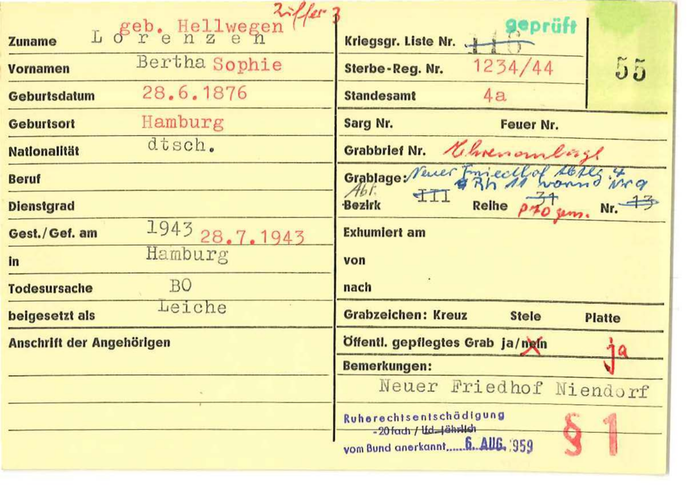 Ziffer 3
geb. Hellwegen
Zuname Lorenzen
Vornamen Bertha Sophie
Geburtsdatum 28.6.1876
Geburtsort Hamburg
Nationalität dtsch.
Beruf
Dienstgrad
Gest./Gef. am 1943 28.7.1943
in Hamburg
Todesursache BO
beigesetzt als Leiche
Anschrift der Angehörigen
geprüft
Kriegsgr. Liste Nr. 116
55
Sterbe-Reg. Nr. 1234/44
Standesamt 4a
Sarg Nr. Feuer Nr.
Grabbrief Nr.
Grablage: Neuer Friedhof Abtlg. 4
Rh 11 Nr 9
Abt.
Bezirk III Reihe 31 Nr. 13
gem.
Exhumiert am
von
nach
Grabzeichen: Kreuz Stele Platte
Öffentl. gepflegtes Grab ja/nein ja
Bemerkungen:
Neuer Friedhof Niendorf
Ruherechtsentschädigung
-20fach / lfd. jährlich
vom Bund anerkannt..... 6. AUG. 1959
§ 1